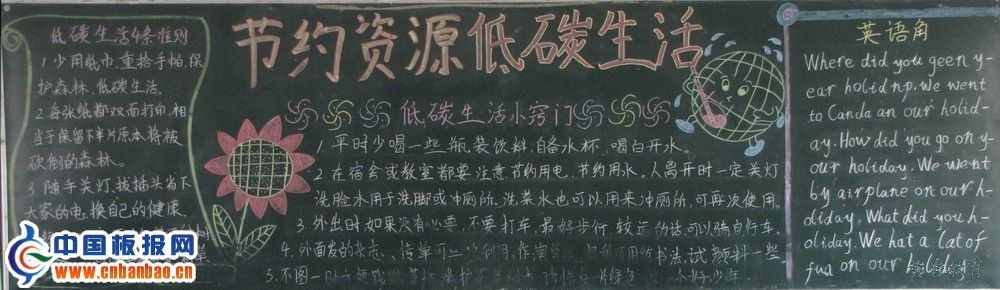 节约资源低碳生活
低碳生活4条准则
1少用纸巾,重拾手帕,保
护森林、低碳生活。
2每张纸都双面打印,相
当于保留下半片原本将被
砍倒的森林。
3随手关灯,拔插头省下
大家的电,换自己的健康
低碳生活小窍门
1平时少喝一些瓶装饮料,自备水杯,喝白开水。
2.在宿舍或教室都要注意节约用电、节约用水。人离开时一定关灯
洗脸水用于洗脚或冲厕所,洗菜水也可以用来冲厕所,可再次使用。
3.外出时如果没有必要,不要打车,最好步行,较远的话可以骑自行车。
4.外面发的杂志、传单可 利用,作演 书法,试颜料一些。
5.不图一时
英语角
Where did you geen y-
ear holidnp. We went
to Canda an our holid-
ay. How did you go on y-
our holiday. We went
by airplane on our h-
oliday. What did you h-
oliday. We hat a lat of
fud on our holiday
中国板报网
www.cnbanbao.cn